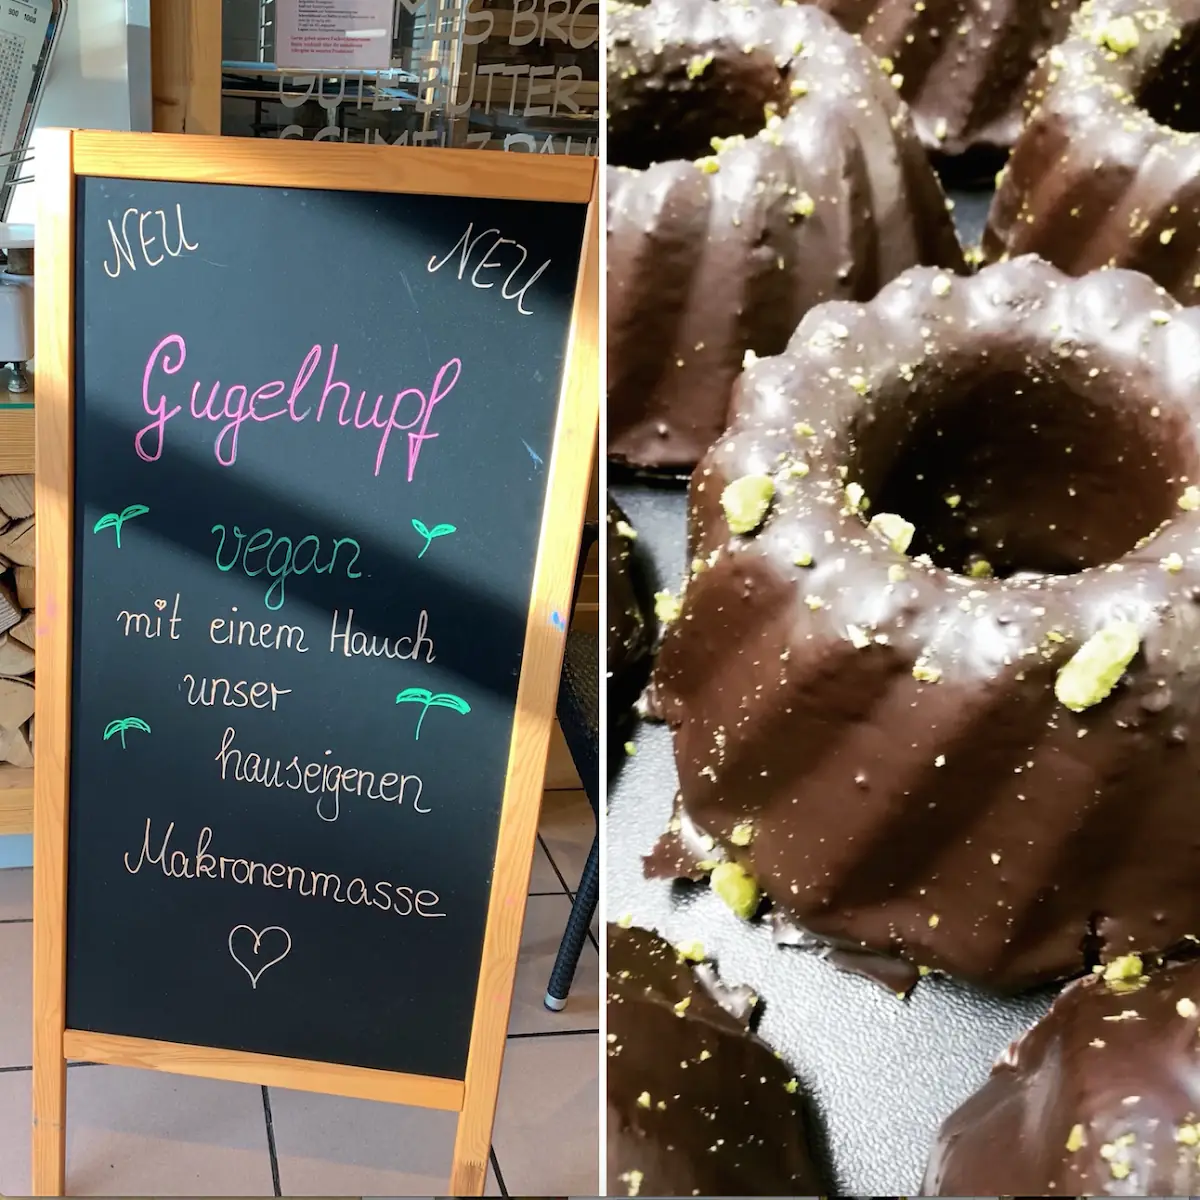 900 1000
BRO
GUTE BUTTER
NEU NEU
Gugelhupf
vegan
mit einem Hauch
unser
hauseigenen
Makronenmasse